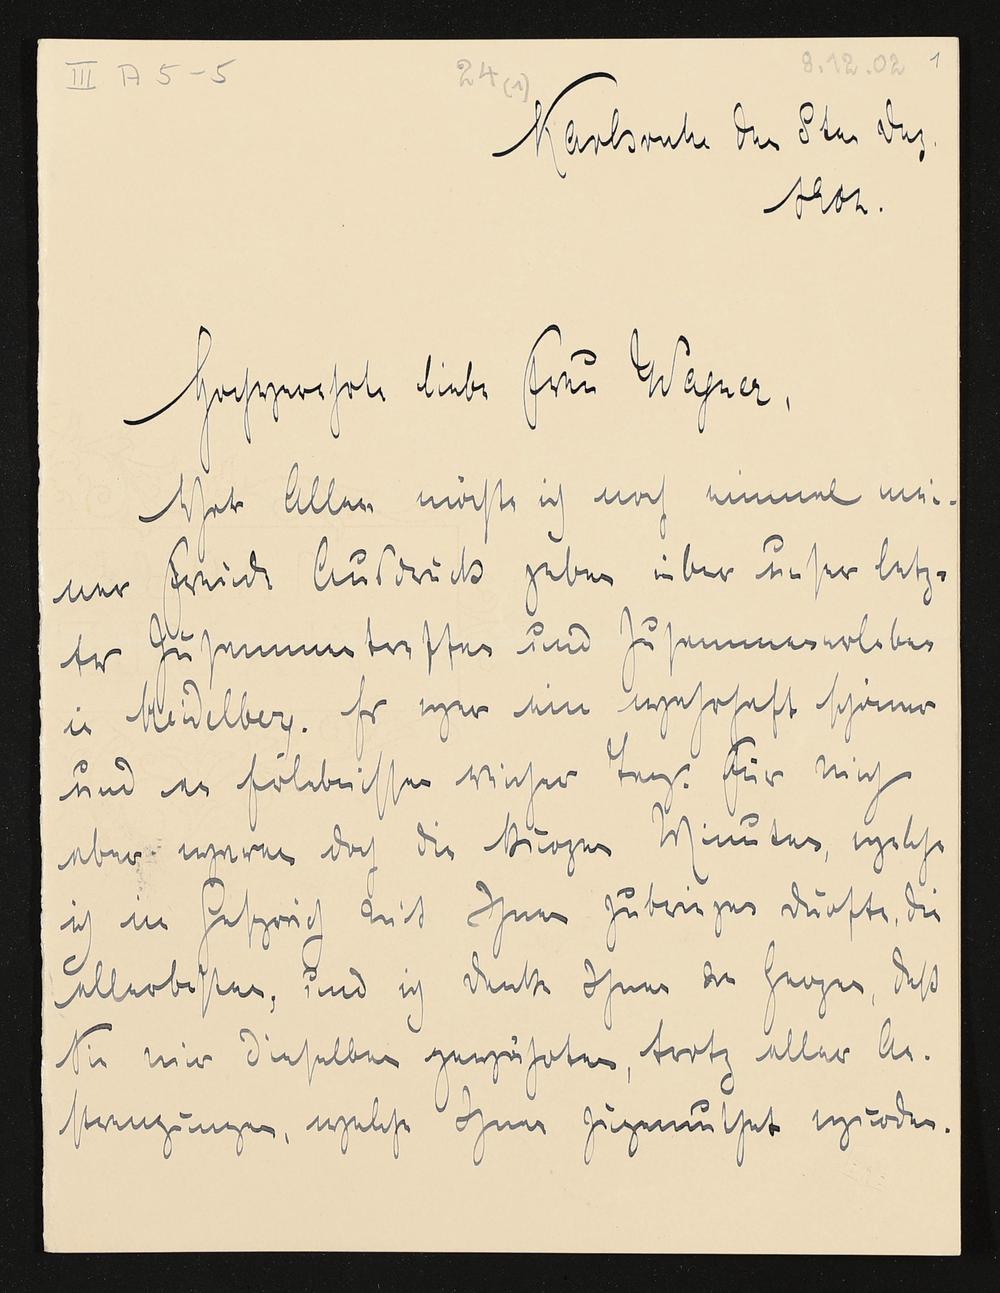 III A 5-5 24 (1) 8.12.02 1
Karlsruhe den 8ten Dez.
1902.
Hochverehrte liebe Frau Wagner,
Vor Allem möchte ich noch einmal mei-
ner Freude Ausdruck geben über unser letz-
tes Zusammentreffen und Zusammenerleben
in Heidelberg. Es war ein wahrhaft schöner
und an Erlebnissen reicher Tag. Für mich
aber waren doch die kurzen Minuten, welche
ich im Gespräch mit Ihnen zubringen durfte, die
allerbesten, und ich danke Ihnen von Herzen, daß
Sie mir dieselben gewährten, trotz aller An-
strengungen, welche Ihnen zugemuthet wurden.